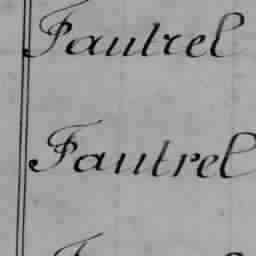 Fautrel
Fautrel